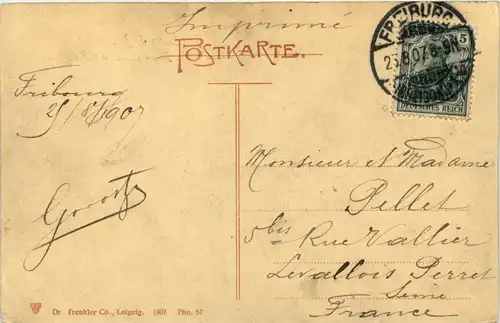 Imprimé
POSTKARTE.
FREIBURG
5
25.8.07. 8-9N.
DEUTSCHES REICH
Fribourg
25/8/1907
Monsieur et Madame
Pellet
5 bis Rue Vallier
Levallois Perret
Seine
France
Dr Trenkler Co., Leipzig. 1907 Pho. 57